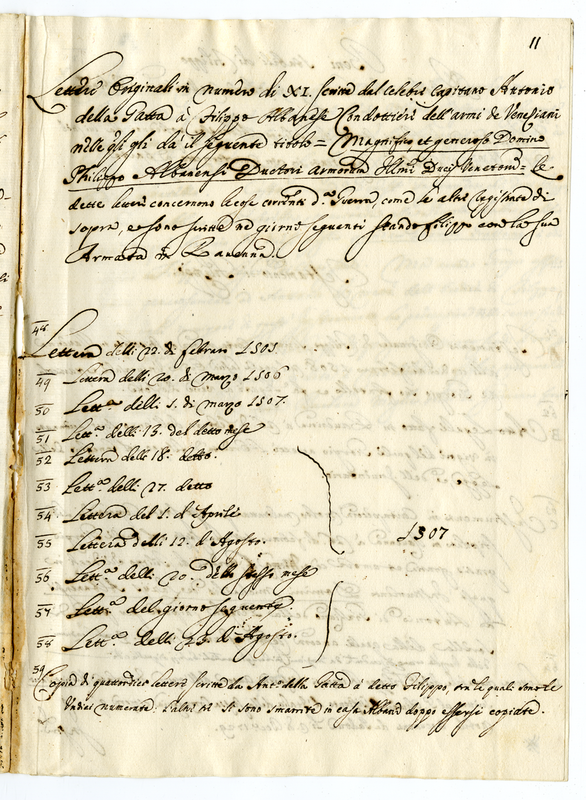 11
Lettere Originali in numero di XI. scritte dal celebre Capitano Antonio
della Gatta à Filippo Albanese Condottiere dell'armi de Veneziani
nelle q̃li gli dà il seguente titolo = Magnifico et generoso Domino
Philippo Albanensi Ductori armorum Ill.mi Ducij Venetoru = le
dette lettere concernono le cose correnti d.a Guerra, come le altre registrate di
sopra, e sono scritte ne giorni seguenti stando Filippo con la sua
Armata in Ravenna.
48 Lettera delli 22. di Febraro 1505.
49 Lettera delli 20. di Marzo 1506
50 Lett.a delli 1. di marzo 1507.
51 Lett.a delli 13. del detto mese
52 Lettera delli 18. detto.
53 Lett.a delli 27. detto
54 Lettera del 1. d'Aprile
55 Lettera delli 12. d'Agosto.
1507
56 Lett.a delli 20. dello stesso mese
57 Lett.a del giorno seguente
58 Lett.a delli 23. di Agosto.
59 Copia di quattordici lettere scritte da Ant.o della Gatta à detto Filippo, tra le quali sono le
Undici numerate. L'altre tre si sono smarrite in casa Alband doppo essersi copiate.